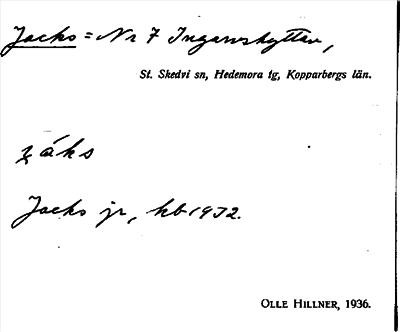 Jacks = Nr 7 Ingarvshyttan,
St. Skedvi sn, Hedemora tg, Kopparbergs län.
jáks
Jacks jr, hb 1932.
OLLE HILLNER, 1936.